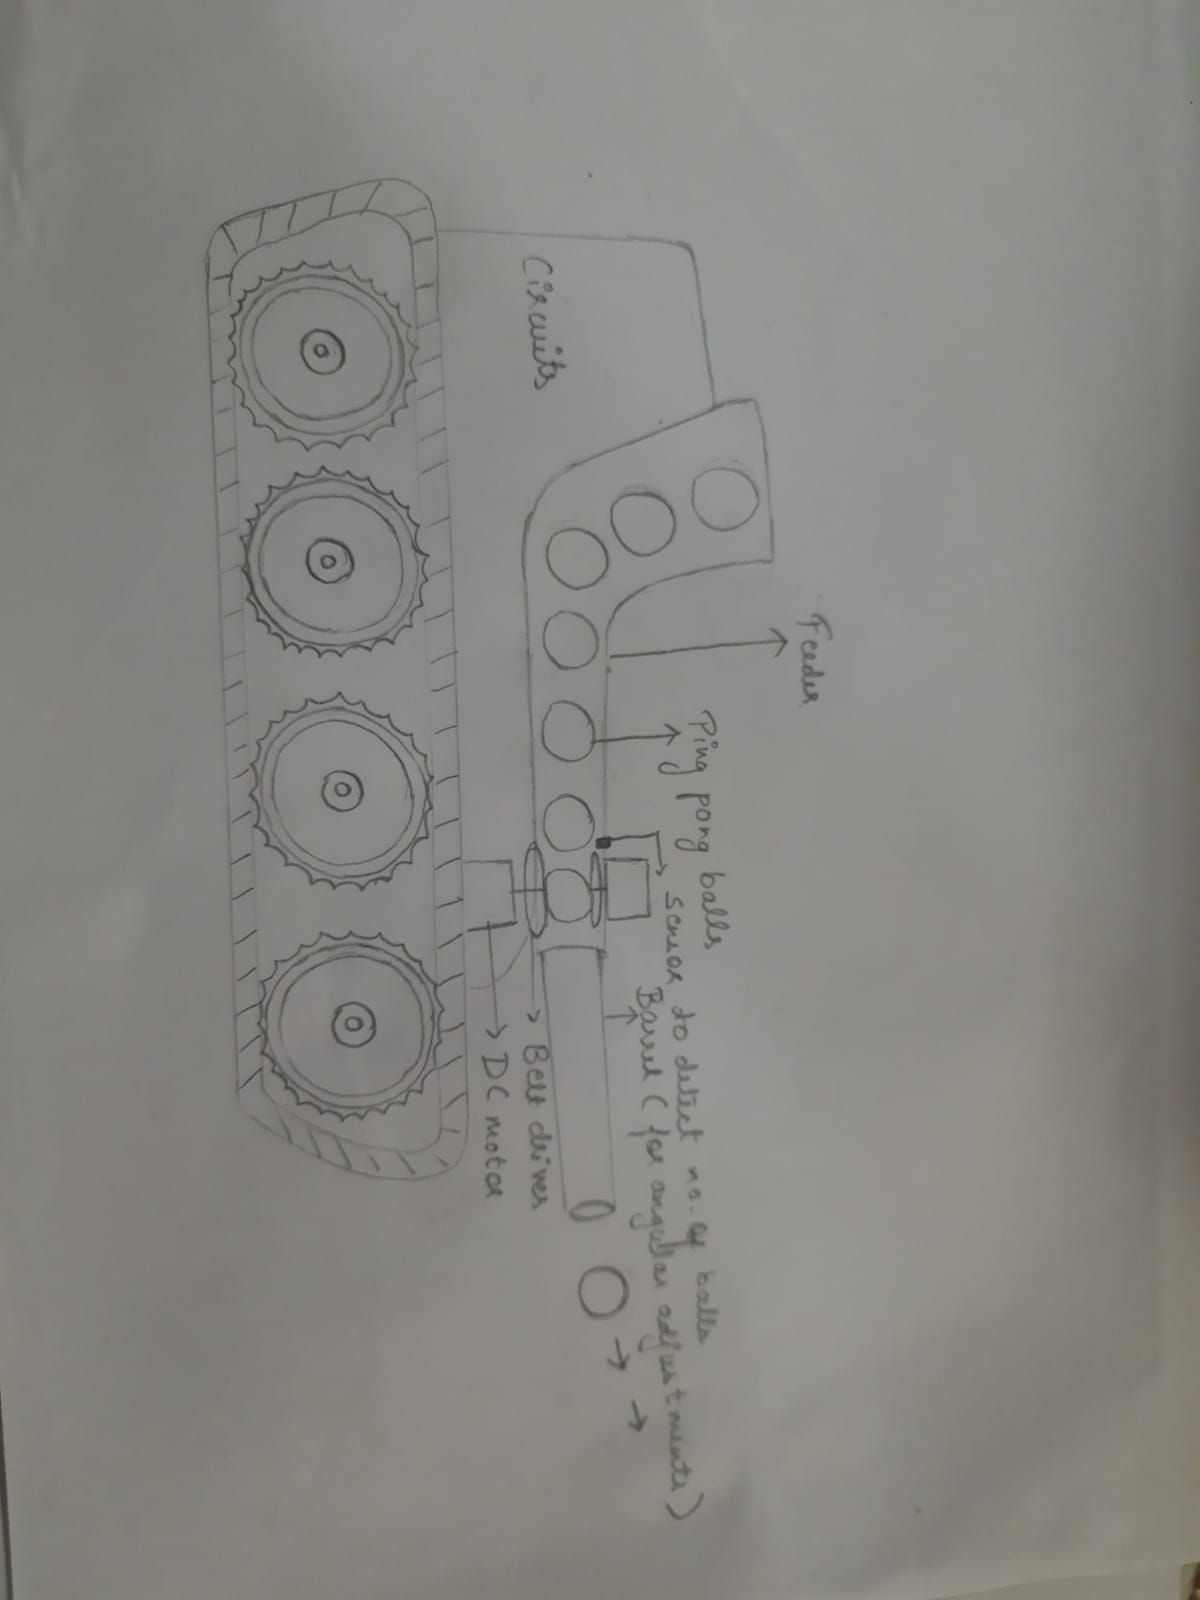 Feeder
Ping pong balls
sensor to detect no. of balls
Barrel (for angular adjustments)
Circuits
Belt drives
DC motor